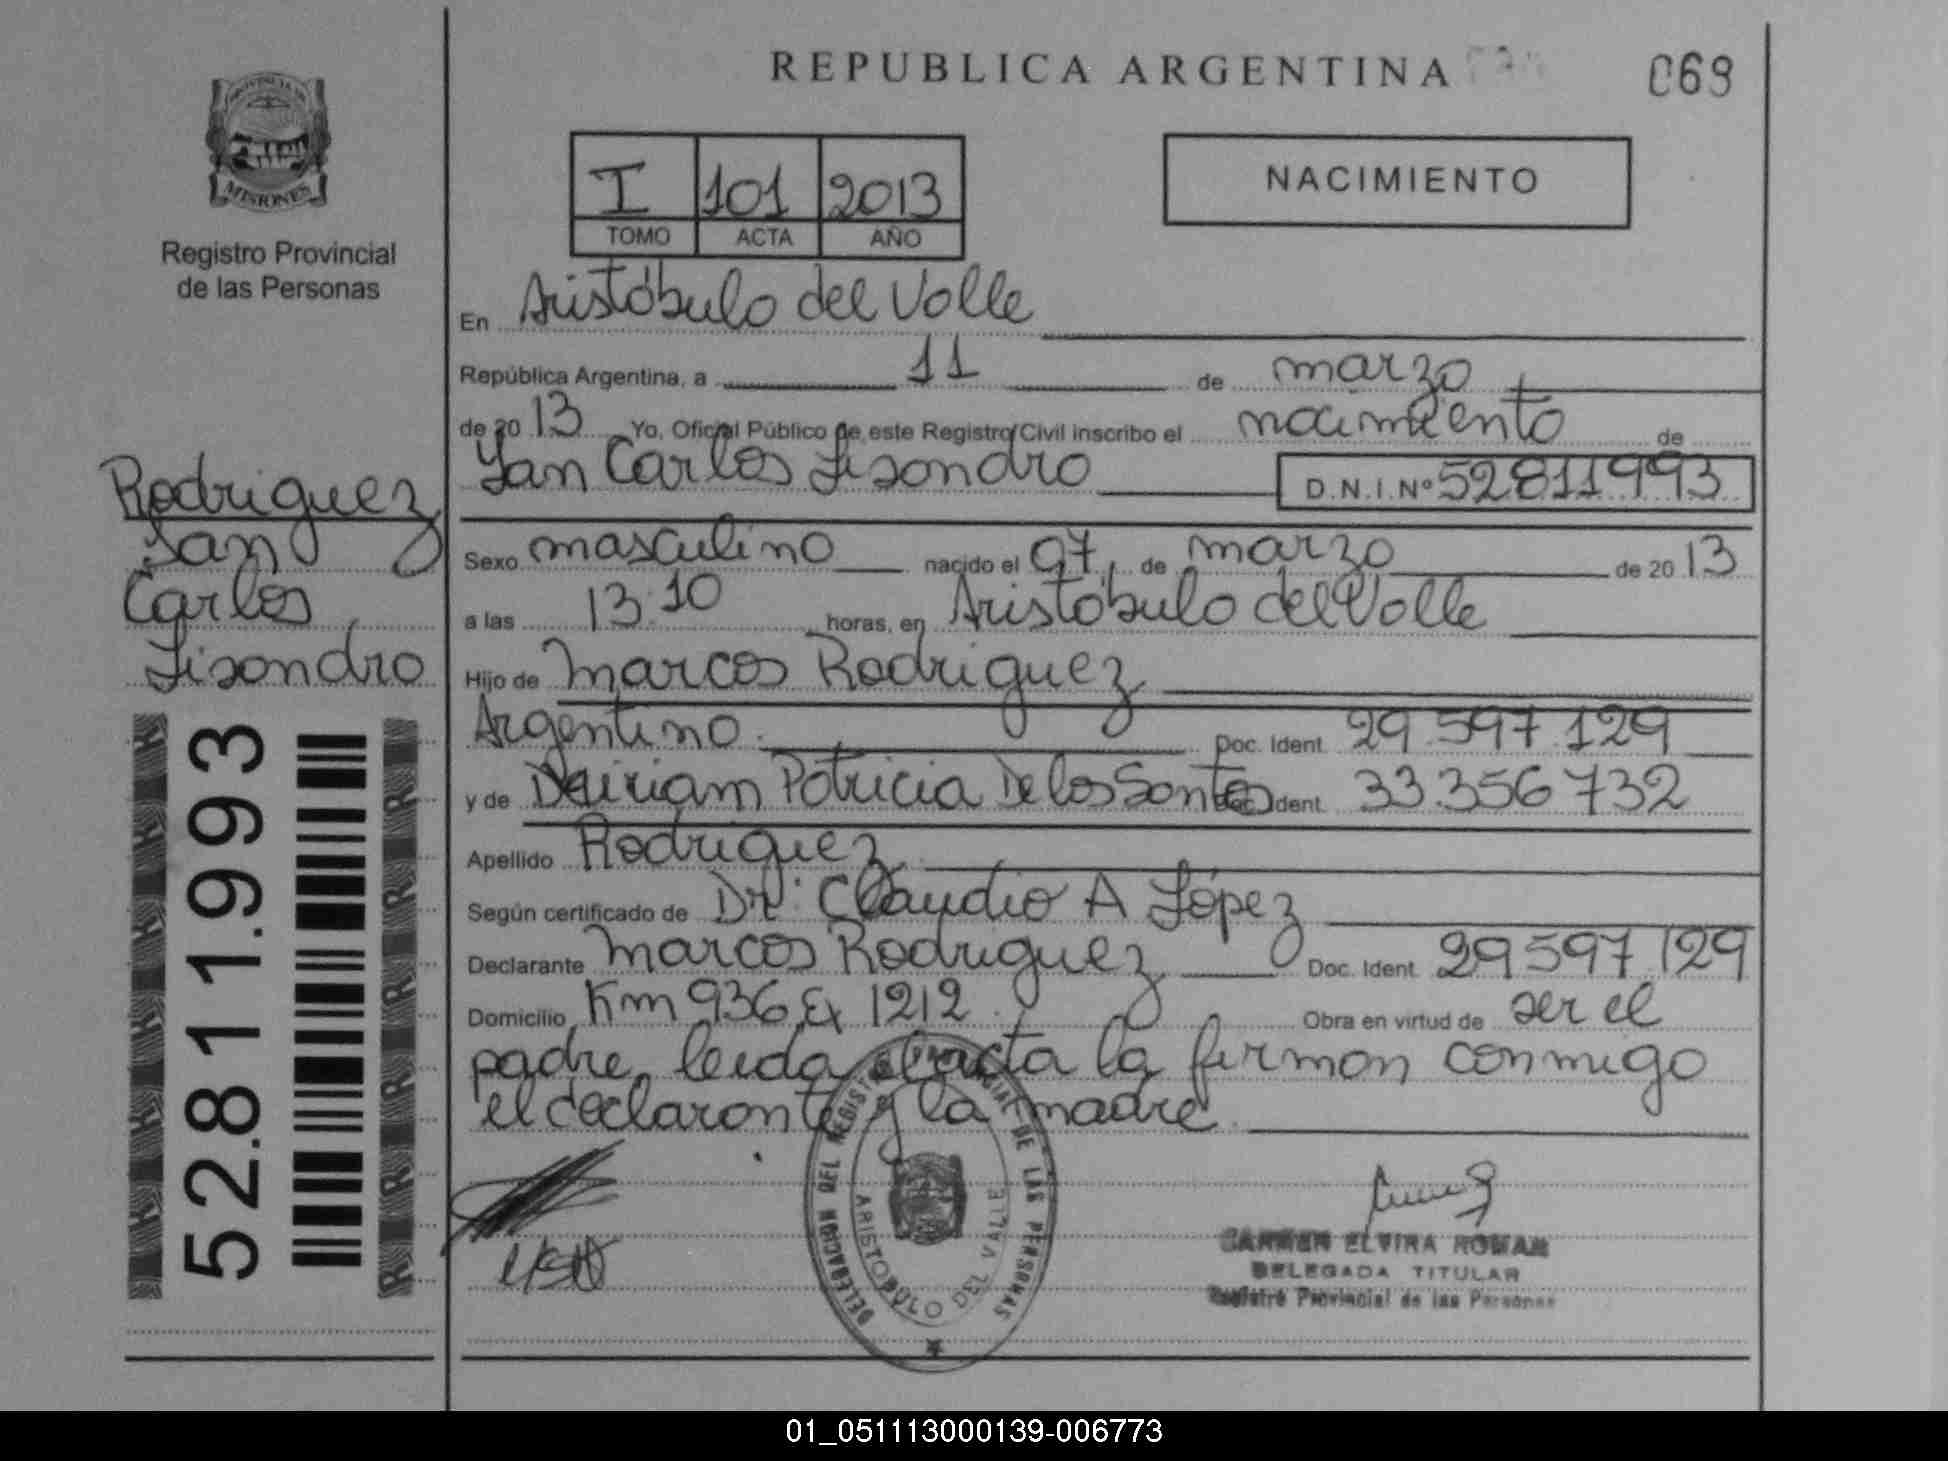 REPUBLICA ARGENTINA
069
PROVINCIA DE
MISIONES
Registro Provincial
de las Personas
I 101 2013
TOMO ACTA AÑO
NACIMIENTO
En Aristóbulo del Valle
República Argentina, a 11 de marzo
de 2013 Yo, Oficial Público de este Registro Civil inscribo el nacimiento de
Yan Carlos Lisandro D.N.I.Nº 52811993
Sexo masculino nacido el 07, de marzo de 2013
a las 13:10 horas, en Aristóbulo del Valle
Hijo de Marcos Rodriguez
Argentino. Doc. Ident. 29.597.129
y de Patricia De los Santos Doc. Ident. 33.356732
Apellido Rodriguez
Según certificado de Dr: Claudio A López
Declarante Marcos Rodriguez Doc. Ident. 29597.129
Domicilio Km 936, Ex 1212. Obra en virtud de ser el
padre, leida el acta la firman conmigo
el declarante y la madre.
Rodriguez
Yan
Carlos
Lisandro
52.811.993
DELEGACION DEL REGISTRO PROVINCIAL DE LAS PERSONAS
ARISTOBULO DEL VALLE
CARMEN ELVIRA ROMAN
DELEGADA TITULAR
Registro Provincial de las Personas
01_051113000139-006773